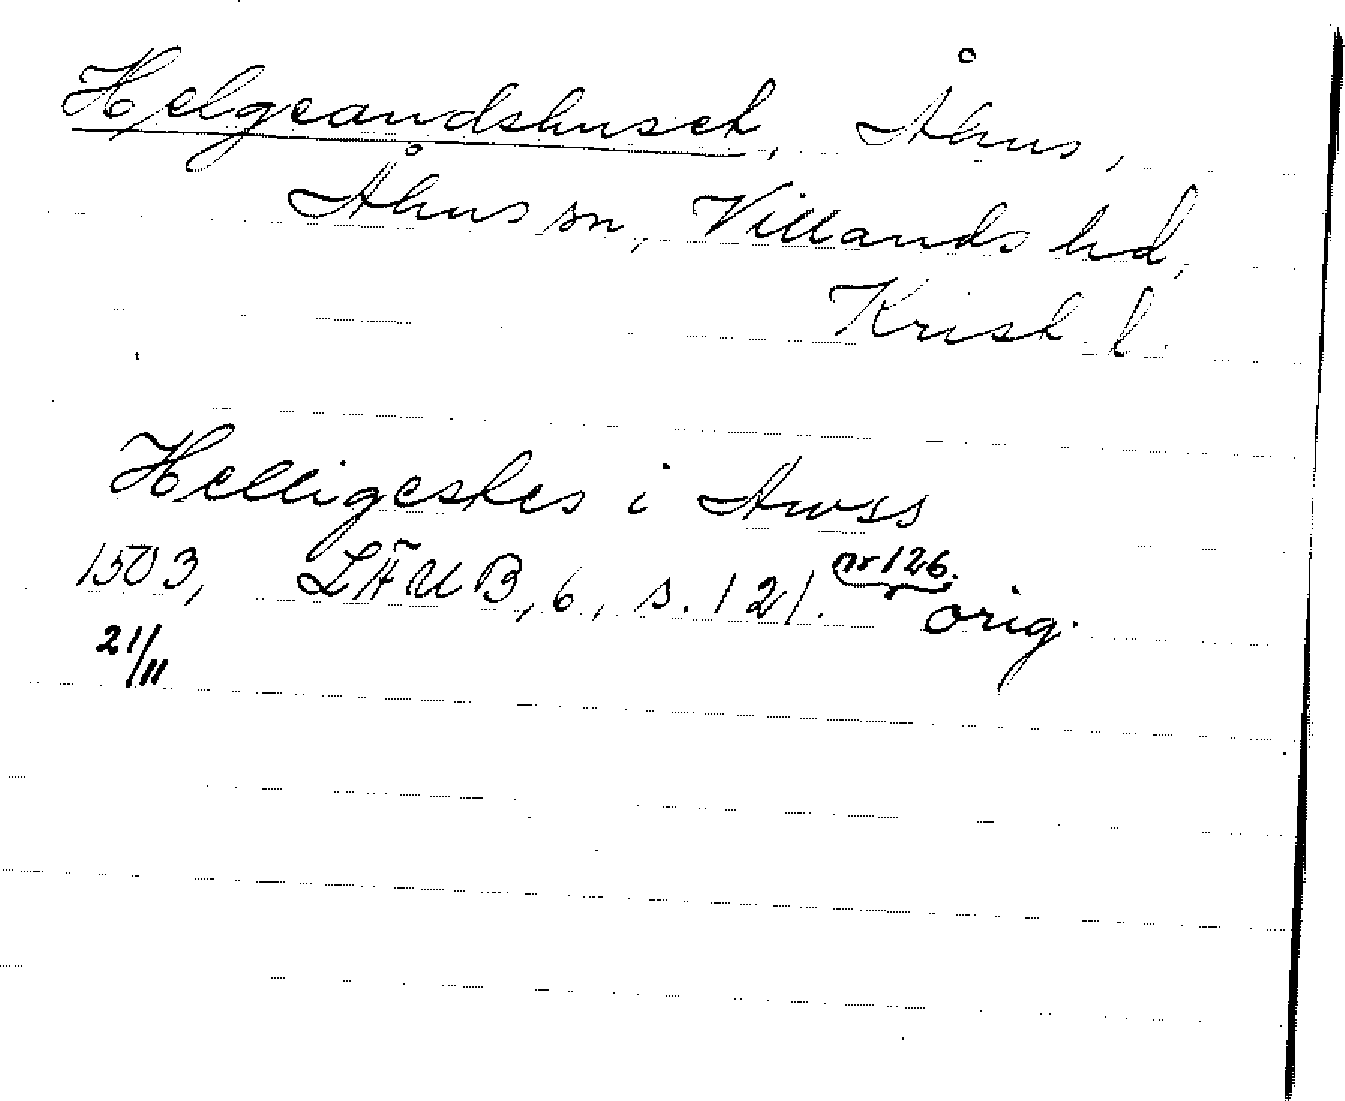 Helgeandshuset, Åhus,
Åhus sn, Villands hd,
Krist l.
Helligestes i Awss
1503, LÄUB, 6, s. 121. nr 126. orig.
21/11